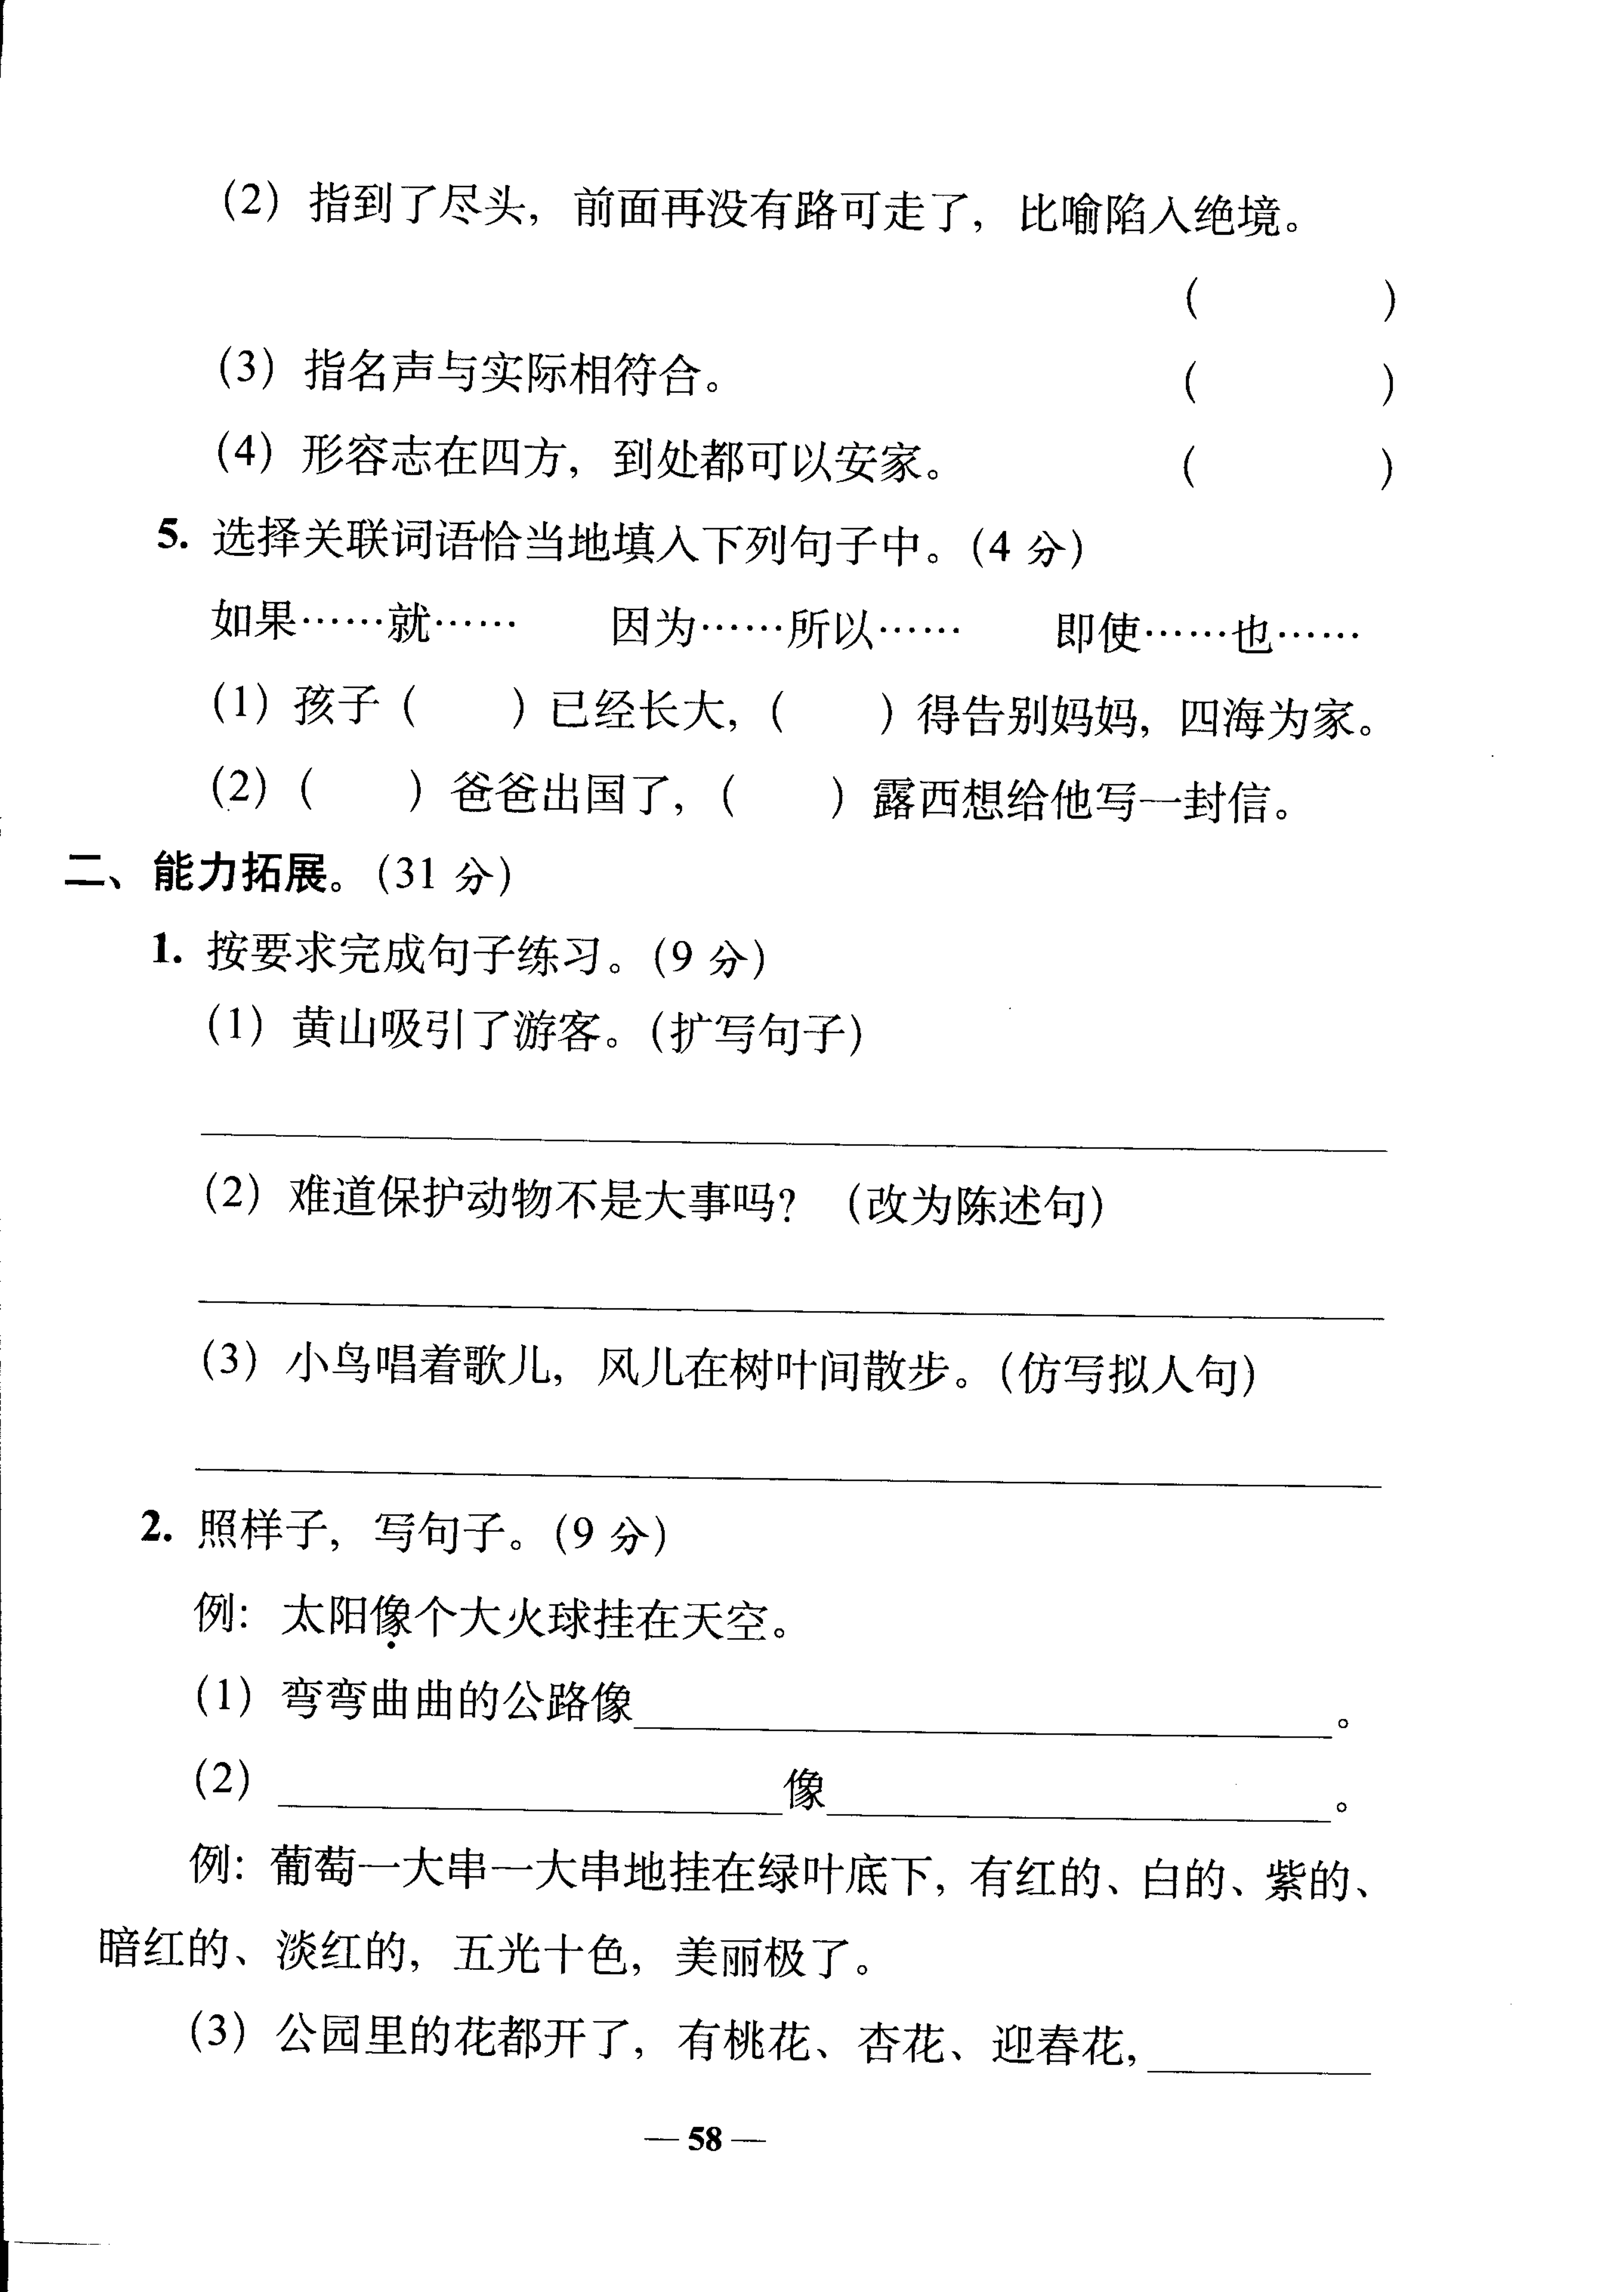 (2) 指到了尽头，前面再没有路可走了，比喻陷入绝境。
(　　　　)
(3) 指名声与实际相符合。 (　　　　)
(4) 形容志在四方，到处都可以安家。 (　　　　)
5. 选择关联词语恰当地填入下列句子中。(4 分)
如果……就…… 因为……所以…… 即使……也……
(1) 孩子 (　　) 已经长大，(　　) 得告别妈妈，四海为家。
(2) (　　) 爸爸出国了，(　　) 露西想给他写一封信。
二、能力拓展。(31 分)
1. 按要求完成句子练习。(9 分)
(1) 黄山吸引了游客。(扩写句子)
(2) 难道保护动物不是大事吗？ (改为陈述句)
(3) 小鸟唱着歌儿，风儿在树叶间散步。(仿写拟人句)
2. 照样子，写句子。(9 分)
例：太阳像个大火球挂在天空。
(1) 弯弯曲曲的公路像________________。
(2) ____________像____________。
例：葡萄一大串一大串地挂在绿叶底下，有红的、白的、紫的、
暗红的、淡红的，五光十色，美丽极了。
(3) 公园里的花都开了，有桃花、杏花、迎春花，______
— 58 —